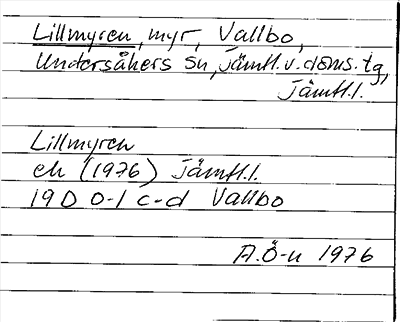 Lillmyren, myr, Vallbo,
Undersåkers sn, Jämtl. v. doms. tg,
Jämtl.l.
Lillmyren
ek (1976) Jämtl.l.
19D 0-1 c-d Vallbo
A.Ö-n 1976